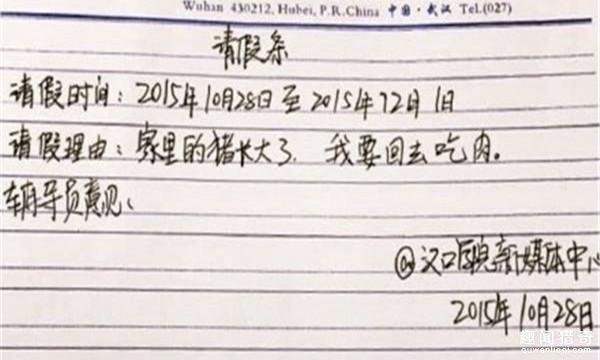 Wuhan 430212, Hubei, P.R.China 中国·武汉 Tel.(027)
请假条
请假时间：2015年10月28日至2015年12月1日
请假理由：家里的猪长大了.我要回去吃肉。
辅导员意见：
@汉口学院新媒体中心
2015年10月28日
趣闻猎奇
quwenlieqi.com